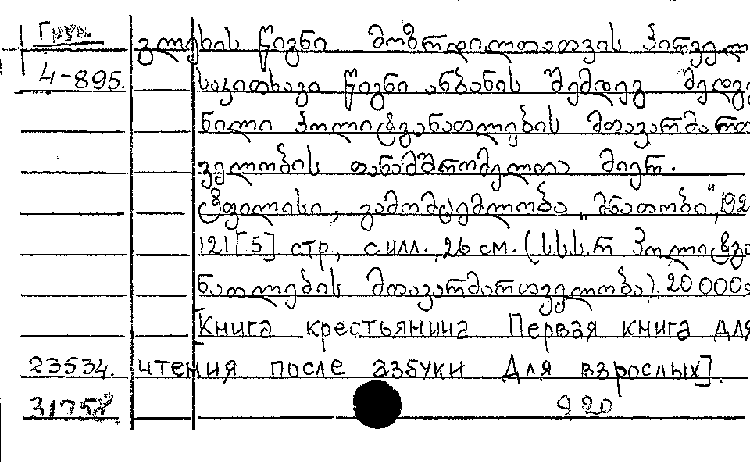 Груз.
გლეხის წიგნი მოზრდილთათვის პირველ
4-895. საკითხავი წიგნი ანბანის შემდეგ შედგე
ნილი პოლიტგანათლების მთავარმართ
ველობის თანამშრომელთა მიერ.
ტფილისი, გამომცემლობა „მნათობი", 192
121[5] стр, с илл., 26 см. (სსს.რ პოლიტგა
ნათლების მთავარმართველობა). 20 000э
[Книга крестьянина Первая книга для
23534. чтения после азбуки Для взрослых].
31758 220